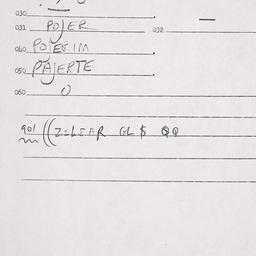 030
031 POJER 032
040 POJEE IM
050 PAJERTE
060 O
901 ((Z:LEAR GL $ QQ